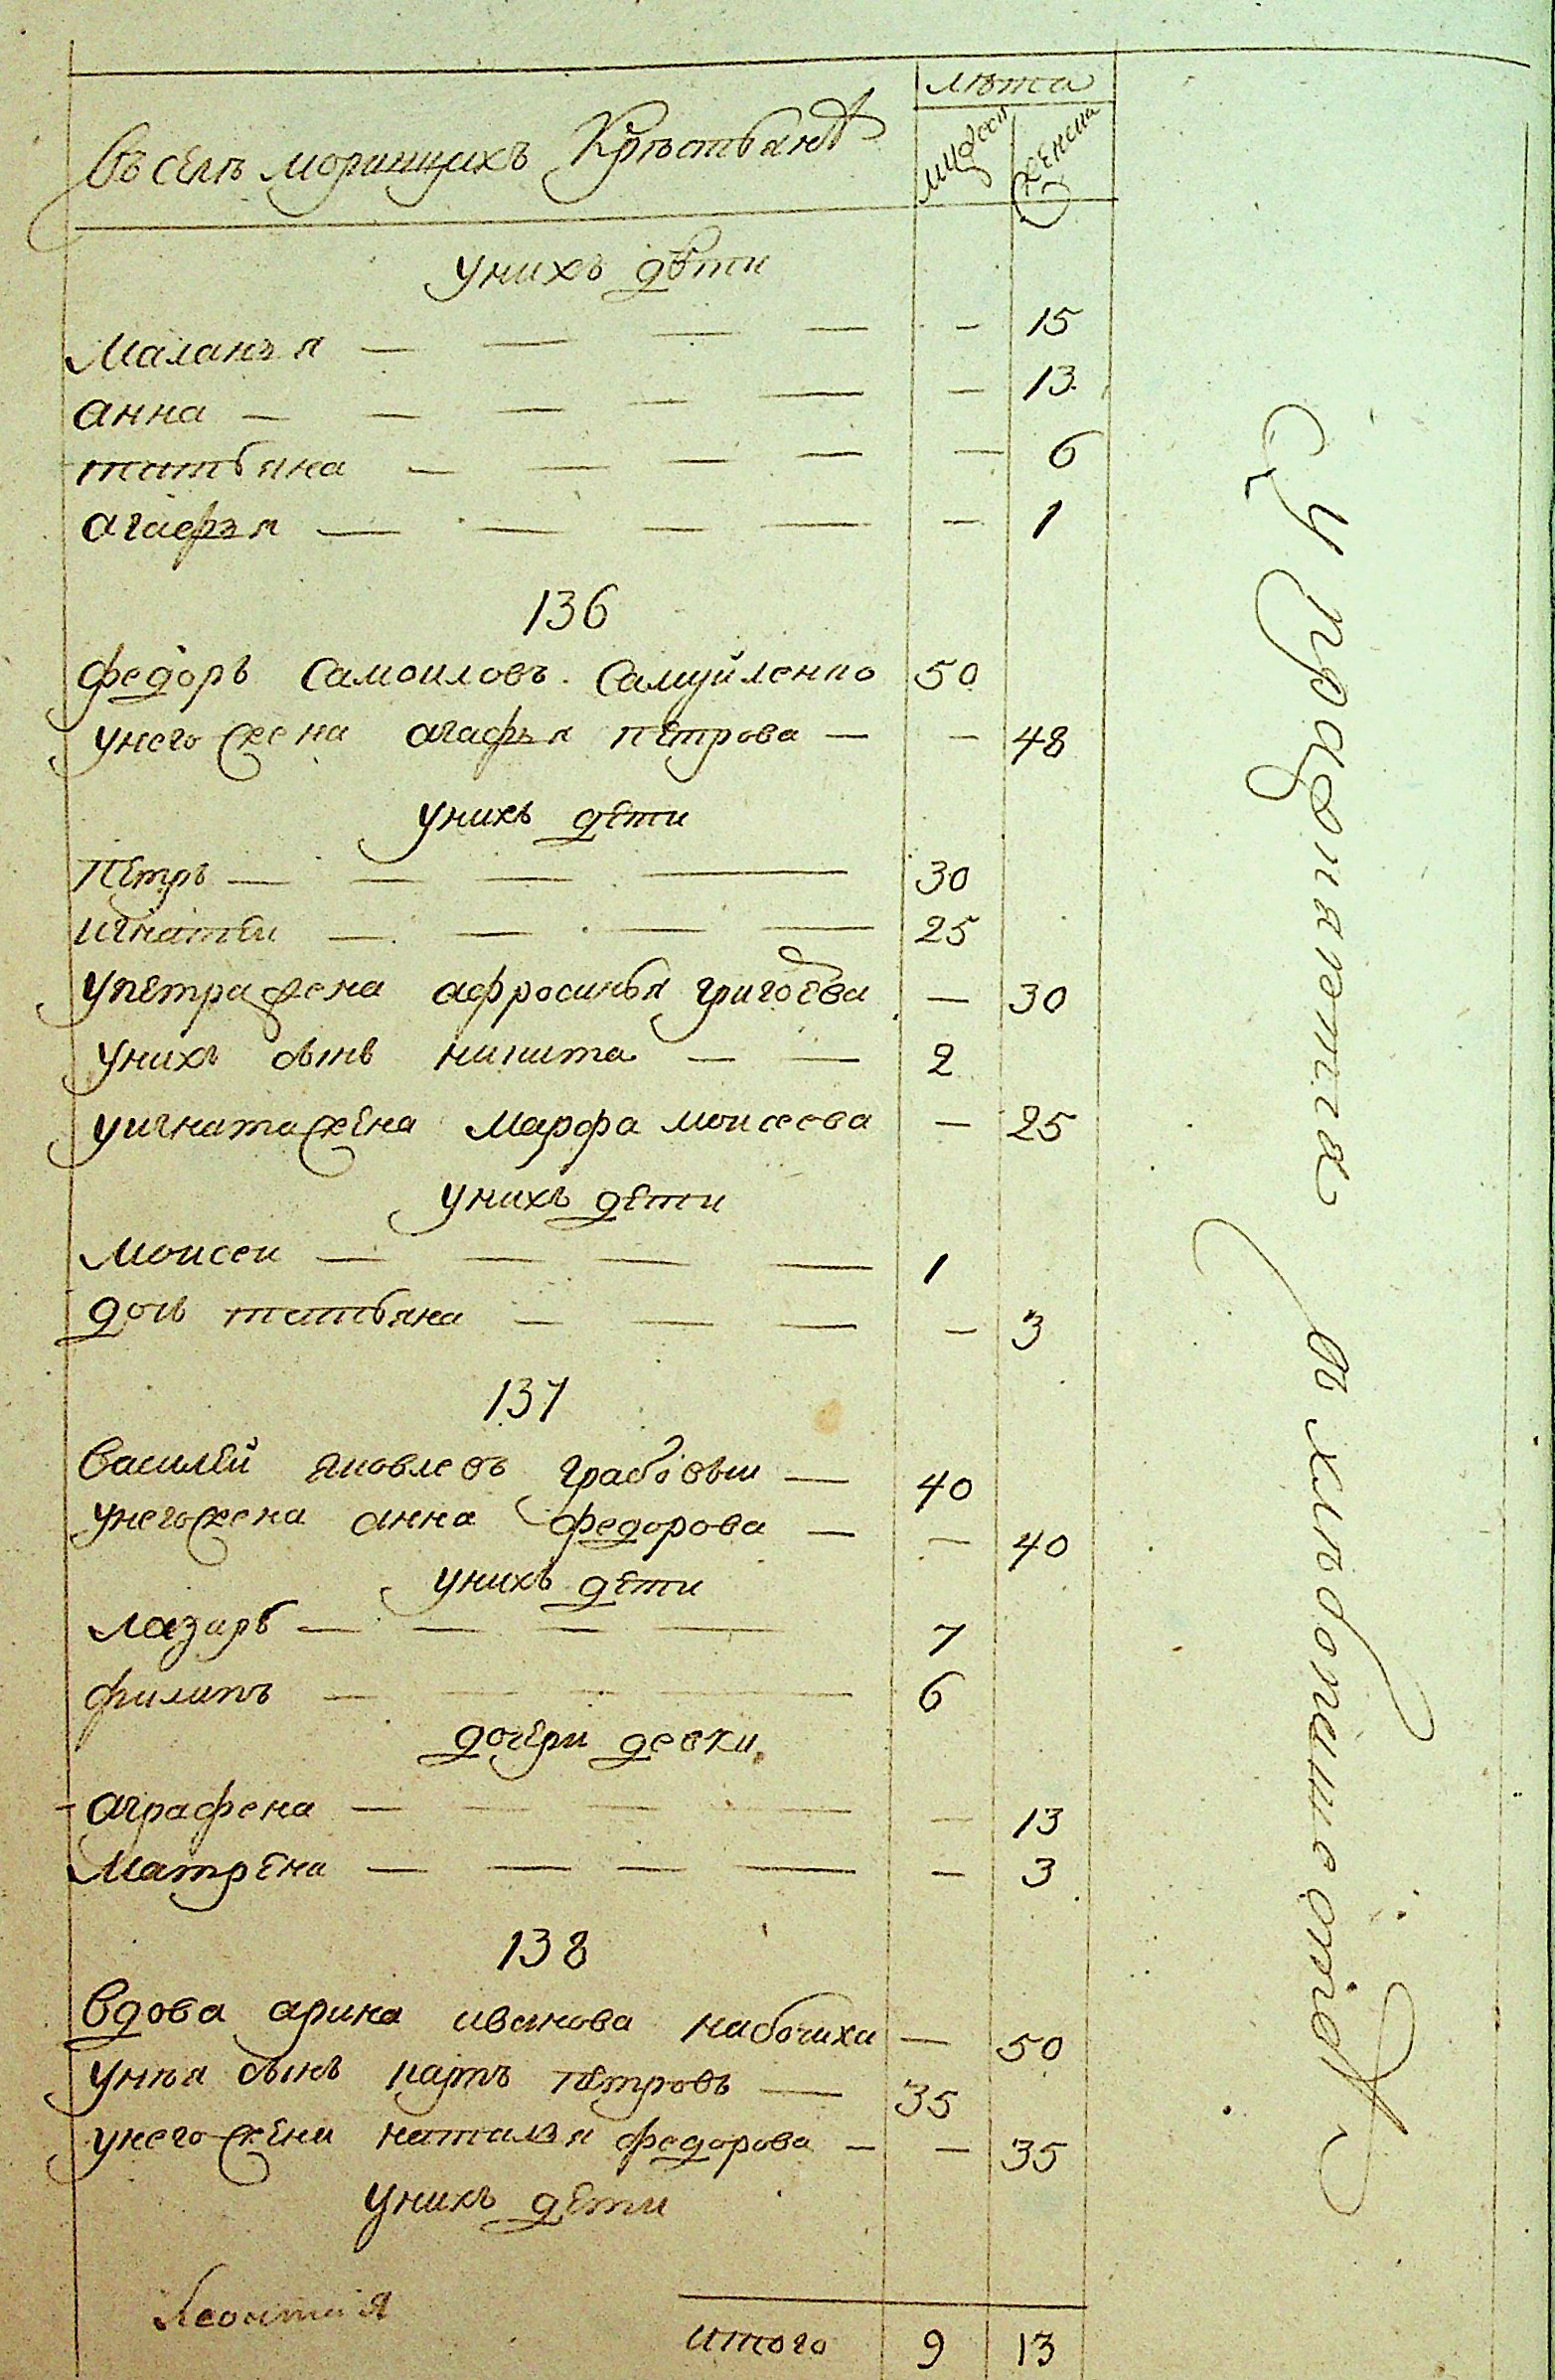 лѣта
Въ селѣ моринцихъ Крѣстьянъ
мужеск женска
у нихъ дѣти
Маланья — — — — — 15
анна — — — — — — 13
татьяна — — — — — 6
агафья — — — — — 1
136
федоръ Самоиловъ Самуйленко 50
у него жена агафья петрова — — 48
у нихъ дети
петръ — — — — 30
игнатеи — — — — 25
у петра жена афросинья григорева — 30
у нихъ сынъ никита — — 2
у игната жена Марфа моисеева — 25
у нихъ дети
Моисеи — — — — 1
дочь татьяна — — — — 3
137
Василей яковлевъ грабовыи — 40
у него жена анна федорова — — 40
у нихъ дети
лазарь — — — — 7
филипъ — — — — 6
дочери девки
аграфена — — — — — 13
Матрена — — — — — 3
138
Вдова арина иванова набочиха — 50
у нея сынъ карпъ петровъ — 35
у него жена наталья федорова — — 35
у нихъ дети
итого 9 13